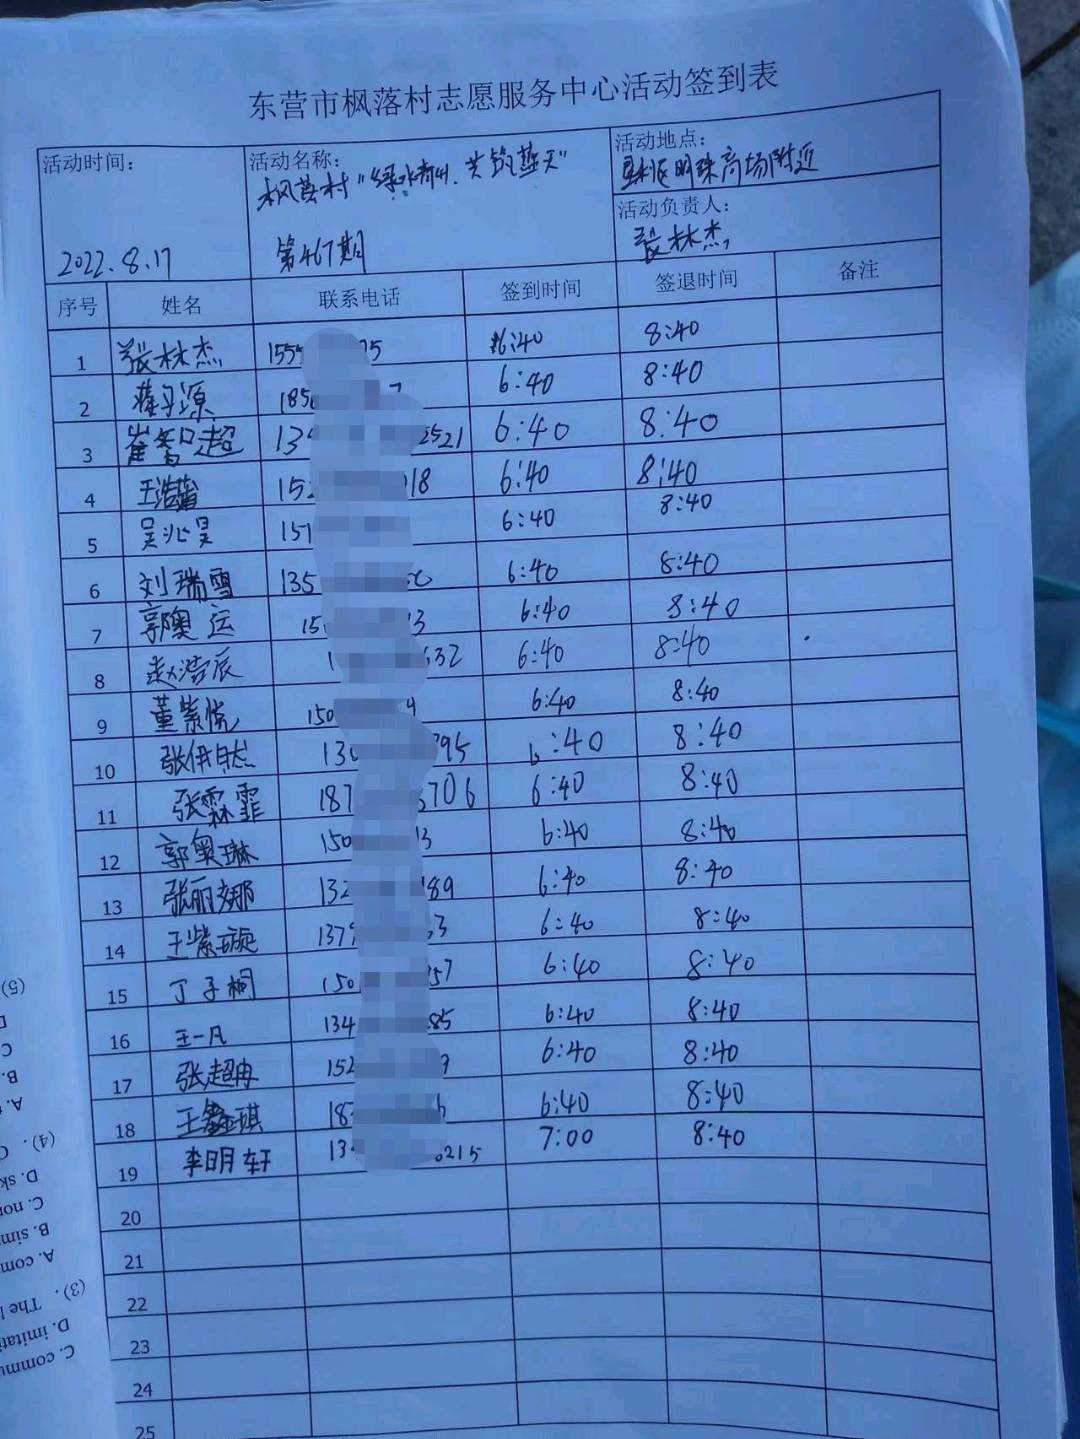 东营市枫落村志愿服务中心活动签到表
活动时间：
2022.8.17
活动名称：
枫落村"绿水青山、共筑蓝天"
第467期
活动地点：
明珠商场附近
活动负责人：
张林杰
序号 姓名 联系电话 签到时间 签退时间 备注
1 张林杰 155 75 6:40 8:40
2 蒋子源 185 7 6:40 8:40
3 崔智超 13 2521 6:40 8:40
4 王浩 152 018 6:40 8:40
5 吴兆昊 151 6:40 8:40
6 刘瑞雪 135 6:40 8:40
7 郭奥运 15 3 6:40 8:40
8 赵浩辰 1 632 6:40 8:40
9 董紫悦 150 6:40 8:40
10 张伊然 130 795 6:40 8:40
11 张霖霏 187 706 6:40 8:40
12 郭奥琳 150 3 6:40 8:40
13 张丽娜 132 189 6:40 8:40
14 王紫璇 137 3 6:40 8:40
15 丁子桐 150 57 6:40 8:40
16 王一凡 134 85 6:40 8:40
17 张超冉 152 9 6:40 8:40
18 王鑫琪 18 6 6:40 8:40
19 李明轩 13 0215 7:00 8:40
20
21
22
23
24
25
(5)
D
C
B.
A.
(4). C
D. sk
C. nor
B. sim
A. com
(3). The
D. imitati
C. commu